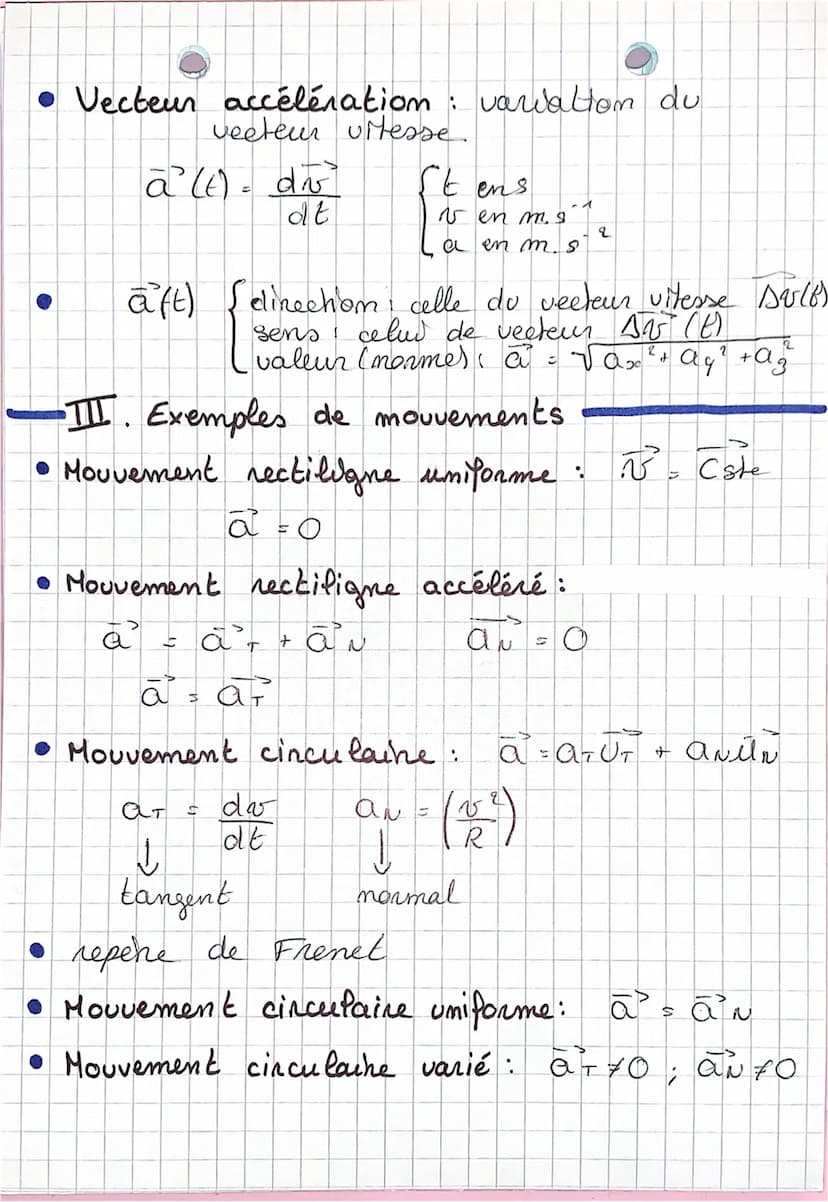 • Vecteur accélération : variation du
vecteur vitesse.
a⃗(t) = dv⃗/dt { t en s
v en m.s⁻¹
a en m.s⁻²
• a⃗(t) { direction : celle du vecteur vitesse Δv⃗(t)
sens : celui de vecteur Δv⃗(t)
valeur (norme) : a⃗ = √(aₓ² + a_y² + a_z²)
III. Exemples de mouvements
• Mouvement rectiligne uniforme : v⃗ = C⃗ste
a⃗ = 0
• Mouvement rectiligne accéléré :
a⃗ = a⃗_T + a⃗_N a⃗_N = 0
a⃗ = a⃗_T
• Mouvement circulaire : a⃗ = a_T U⃗_T + a_N U⃗_N
a_T = dv/dt a_N = (v²/R)
↓ ↓
tangent normal
• repère de Frenet
• Mouvement circulaire uniforme : a⃗ = a⃗_N
• Mouvement circulaire varié : a⃗_T ≠ 0 ; a⃗_N ≠ 0